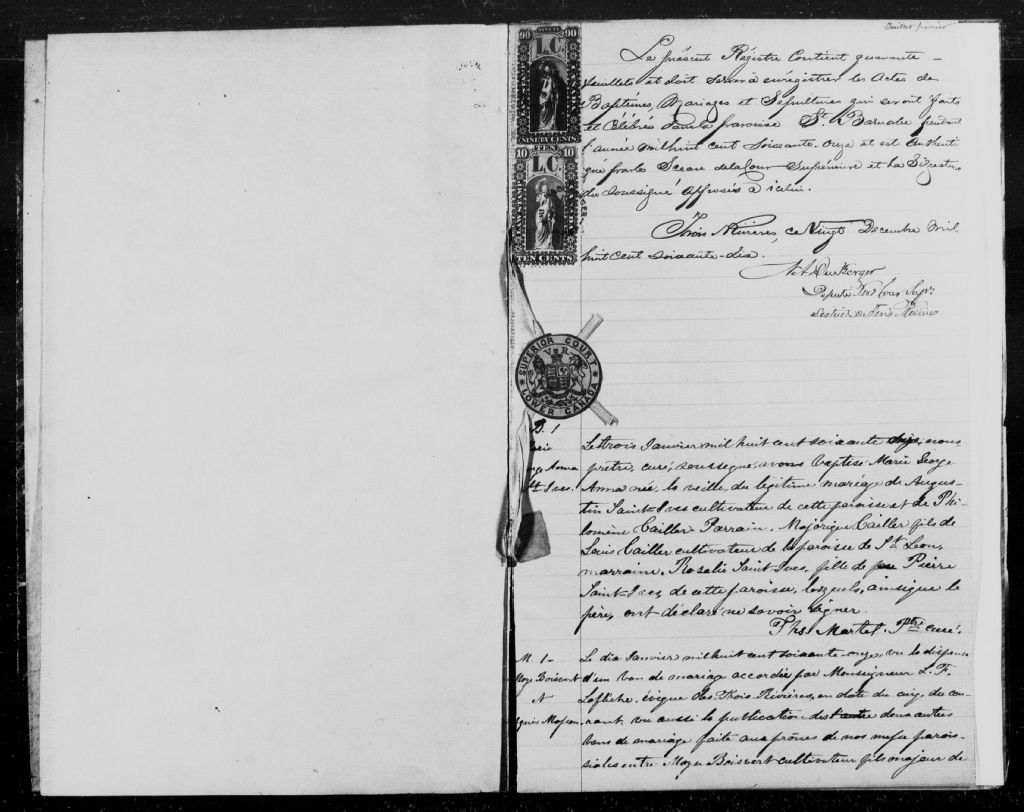 Feuillet premier
Le présent Régistre Contient quarante
feuillets et doit servir à enrégistrer les Actes de
Baptêmes, Mariages et Sépultures qui seront faits
et Célébrés dans la paroisse St Barnabé pendant
l'année mil huit cent soixante-onze et est authenti
qué par le Sceau de la Cour Supérieure et la Signature
du soussigné apposés à icelui.
Trois Rivières, ce Vingt Decembre mil
huit cent soixante-dix.
Berger
Deputé Prot Cour Supre
District de Trois Rivières
NINETY
90 90
L.C.
NINETY CENTS
TEN
10 10
L.C.
TEN CENTS
SUPERIOR COURT
V R
LOWER CANADA
B. 1
Marie
George Anna
St Ives.
Le trois Janvier mil huit cent soixante onze, nous
prêtre, curé, soussigné, avons baptisé Marie George
Anna née, la veille du légitime mariage de Augus-
tin Saint-Ives cultivateur de cette paroisse et de Phi-
lomène Cailler Parrain, Majorique Cailler fils de
Louis Cailler cultivateur de la paroisse de St Leon,
marraine, Rosalie Saint-Ives, fille de feu Pierre
Saint-Ives, de cette paroisse, lesquels, ainsi que le
père, ont déclaré ne savoir signer.
Ths Martel. Ptre curé.
M. 1-
Moyse Boisvert
&
Agnès
Le dix Janvier mil huit cent soixante-onze, vu la dispense
d'un ban de mariage accordée par Monseigneur L. F.
Laflèche, évêque des Trois Rivières, en date du cinq du cou-
rant, vu aussi la publication des deux autres
bans de mariage faite aux prônes de nos messes parois-
siales entre Moyse Boisvert cultivateur fils majeur de